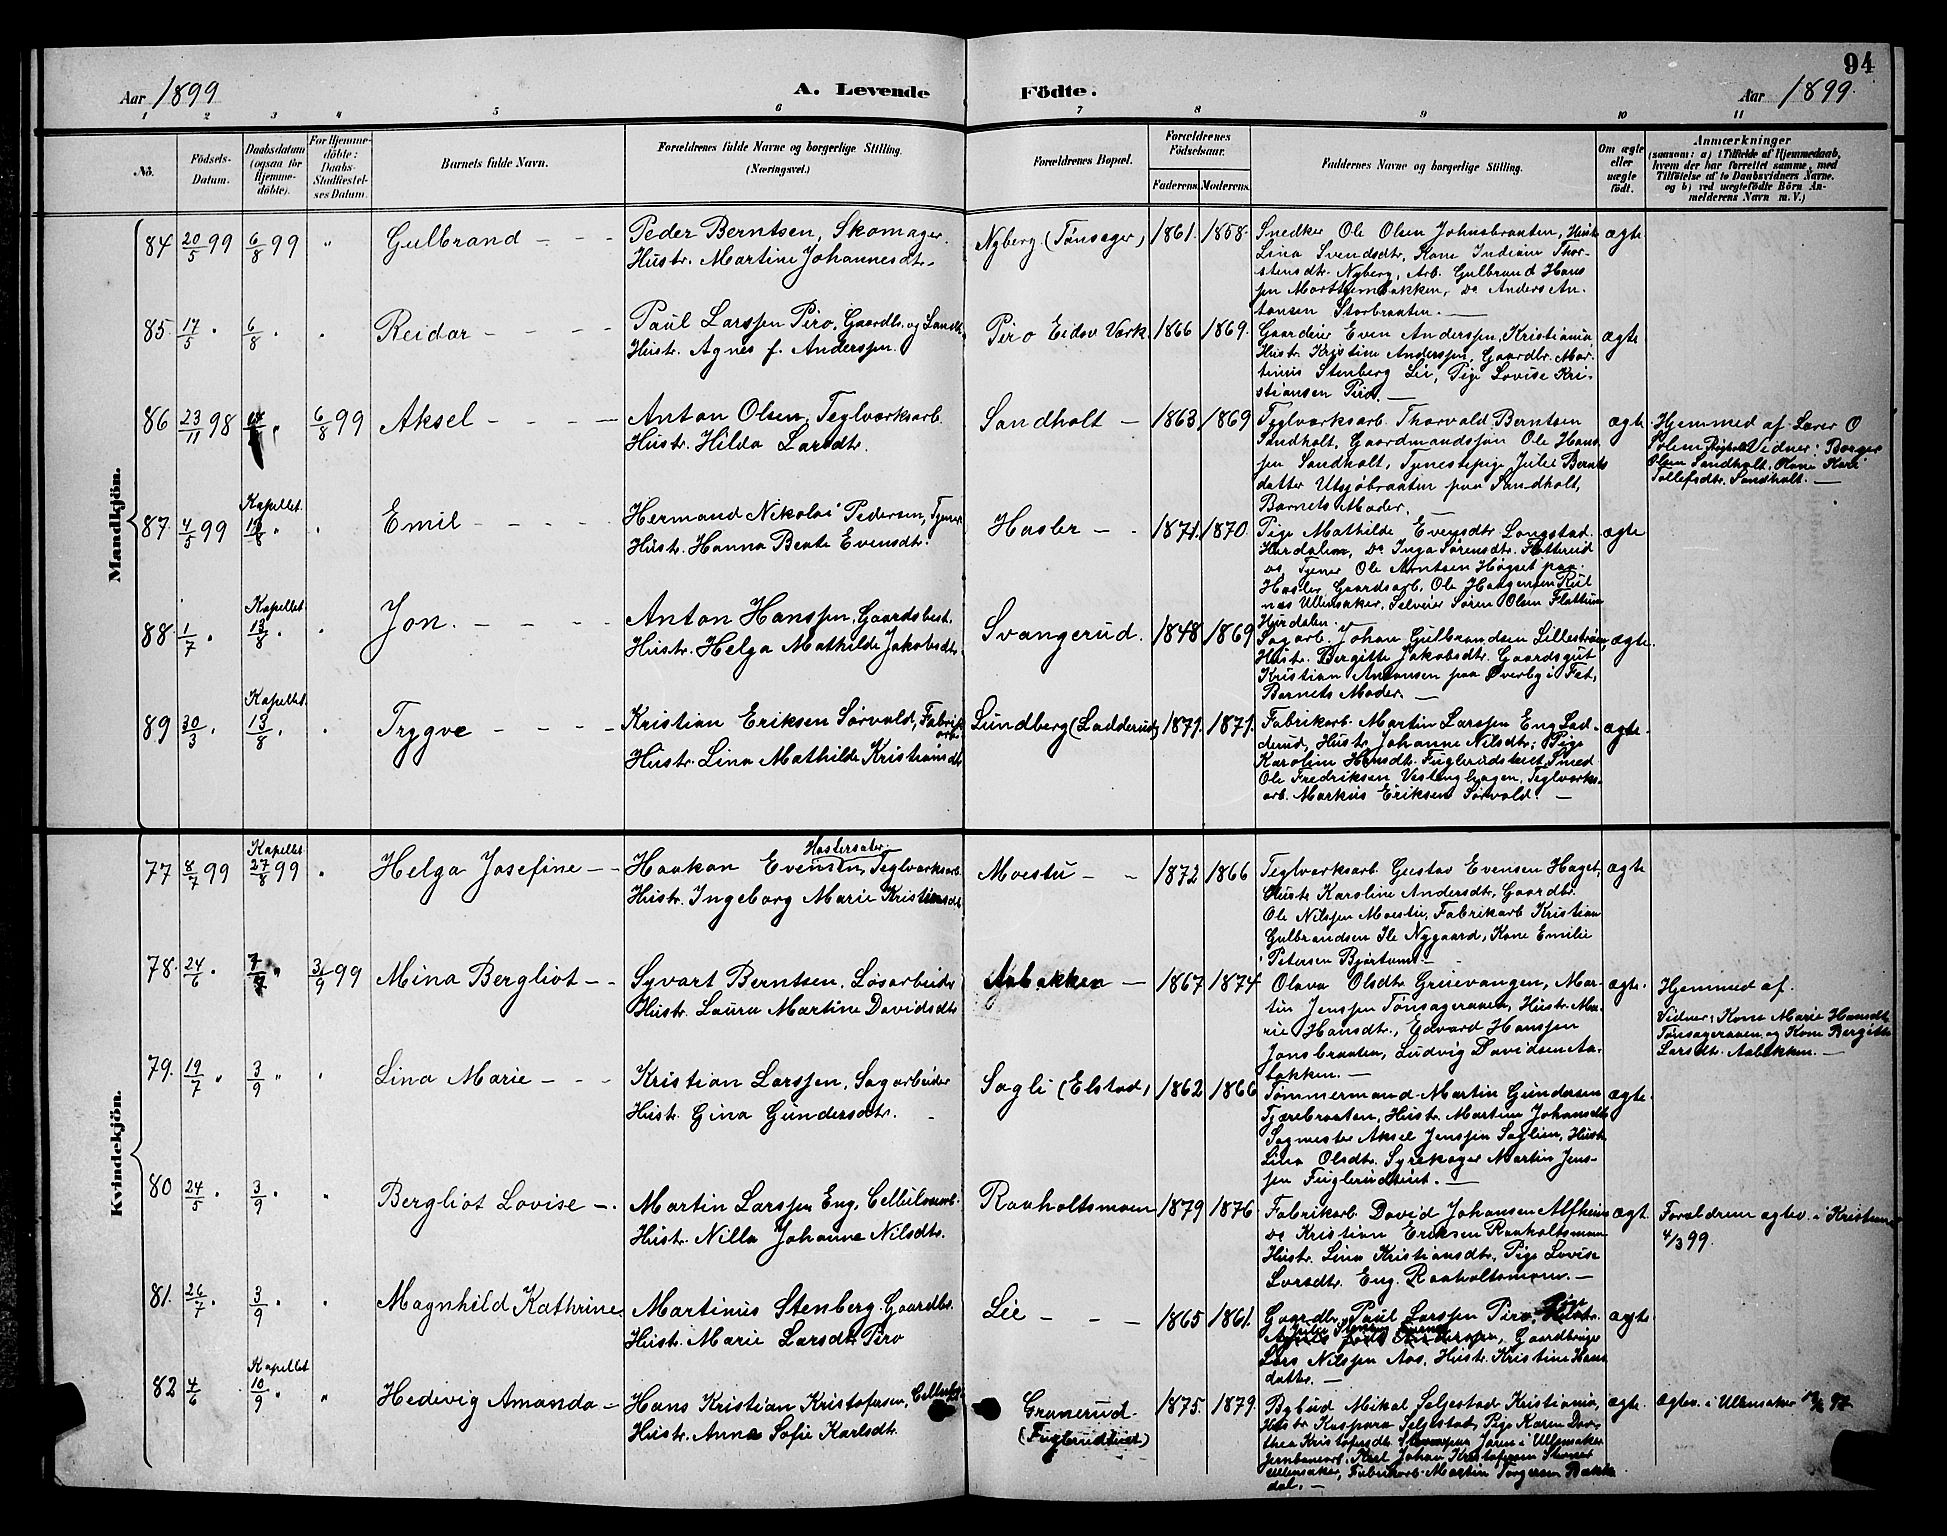 94
Aar 1899
A. Levende Födte.
Aar 1899.
1 2 3 4 5 6 7 8 9 10 11
No.
Födsels-Datum.
Daabsdatum (ogsaa for Hjemme-döbte).
For Hjemme-döbte: Daabs-Stadfæstel-ses Datum.
Barnets fulde Navn.
Forældrenes fulde Navne og borgerlige Stilling. (Næringsvei.)
Forældrenes Bopæl.
Forældrenes Födselsaar.
Faderens.
Moderens.
Faddernes Navne og borgerlige Stilling.
Om ægte eller uægte födt.
Anmærkninger
(saasom: a) i Tilfælde af Hjemmedaab,
hvem der har forrettet samme, med
Tilföielse af to Daabsvidners Navne.
og b) ved uægtefödte Börn An-
melderens Navn m. V.)
Mandkjön.
84 20/5 99 6/8 99 " Gulbrand
Peder Berntsen, Skomager.
Hustr. Martine Johannesdtr.
Nyberg (Tønsager) 1861. 1858.
Snedker Ole Olsen Johnsbraaten, Hustr
Lina Svendsdtr, Kone Indiane Thor-
stensdtr. Nyberg, Arb. Gulbrand Hans
sen Morthembakken, Do Anders An-
tonsen Storbraaten.
ægte
85. 17/5 " 6/8 " " Reidar
Paul Larssen Piro, Gaardbr. og Landh.
Hustr. Agnes f. Anderssen.
Piro Eidsv Værk 1866 1869.
Gaardeier Even Anderssen, Kristiania
Hustr. Kristine Anderssen, Gaardbr. Mar-
tinus Stenberg Lie, Pige Lovise Kri-
stiansen Piro.
ægte
86 23/11 98 6/8 99 Aksel
Anton Olsen, Teglværksarb.
Hustr. Hilda Larsdtr.
Sandholt 1863. 1869
Teglværksarb. Thorvald Berntsen
Sandholt, Gaardmandssøn Ole Hans
sen Sandholt, Tjenestepige Julie Bernts
datter Utsjøbraaten paa Sandholt,
Barnets Moder.
ægte.
Hjemmed af Lærer O
Solem Vidner: Borger
Olsen Sandholt, Kone Kari
Tollefsdtr. Sandholt.
87. 4/5 99 Kapellet 13/8 " " Emil
Hermand Nikolai Pedersen, Tjener
Hustr. Hanna Beate Evensdtr.
Hasler 1871. 1870.
Pige Mathilde Evensdtr Longstad
Hurdalen, Do Inga Sørensdtr. Flattereid
Do, Tjener Ole Arntsen Høgset paa
Hasler, Gaardsarb. Ole Haagensen
Ullensaker, Selveier Søren Olsen
Hurdalen.
ægte
88. 1/7 " Kapellet 13/8 " " Jon.
Anton Hanssen, Gaardsbest.
Hustr. Helga Mathilde Jakobsdtr.
Svangerud. 1848. 1869
Sagarb. Johan Gulbrandsen Lillestrøm
Hustr. Bergitte Jakobsdtr. Gaardsgut
Kristian Antonsen paa Øverby i Fet,
Barnets Moder.
ægte.
89 30/3 " Kapellet 13/8 " " Trygve
Kristian Eriksen Sørvald, Fabrik
arb.
Hustr. Lina Mathilde Kristiansdtr
Lundberg (Ladderud) 1871. 1871.
Fabrikarb. Martin Larssen Eng Lad-
derud, Hustr Johanne Nilsdtr; Pige
Karoline Hansdtr. Fuglerudsteiet, Smed
Ole Fredriksen Vestenghagen, Teglværks-
arb. Markus Eriksen Sørvald.
ægte.
Kvindekjön.
77 8/7 99 Kapellet 27/8 99 " Helga Josefine
Haslersæter.
Haakon Evensen, Teglværksarb.
Hustr. Ingeborg Marie Kristiansdtr
Moestu 1872 1866
Teglværksarb. Gustav Evensen Haget,
Hustr Karoline Andersdtr, Gaardbr.
Ole Nilssen Moestu, Fabrikarb Kristian
Gulbrandsen Ile Nygaard, Kone Emilie
Petersen Bjørtomt.
ægte
78. 24/6 " 7/7 " 3/9 99 Mina Bergliot
Syvart Berntsen, Løsarbeider
Hustr. Laura Martine Davidsdtr
Aabakken 1867 1874
Olava Olsdtr Gruevangen, Mar-
tin Jenssen Tønsageraaen, Hustr. Ma-
rie Hansdtr., Edvard Hanssen
Jonsbraaten, Ludvig Davidsen Aa-
bakken.
ægte.
Hjemmed af.
Vidner: Kone Marie Hansdtr
Tønsageraaen og Kone Bergitte
Larsdtr. Aabakken.
79. 19/7 " 3/9 " " Lina Marie
Kristian Larssen, Sagarbeider
Hustr. Gina Gundersdtr.
Sagli (Elstad) 1862 1866
Tømmermand Martin Gundersen
Tjærebraaten, Hustr. Martine Johansdtr
Sagmester Aksel Jenssen Saglien, Hustr
Lina Olsdtr. Syrekoger Martin Jens-
sen Fuglerudsteiet.
ægte.
80 24/5 " 3/9 " " Bergliot Lovise
Martin Larssen Eng, Cellulosearb.
Hustr. Nilla Johanne Nilsdtr.
Raaholtsmoen 1879 1876
Fabrikarb. David Johansen Alfheim
Do Kristian Eriksen Raaholtsmoen
Hustr. Lina Kristiansdtr, Pige Lovise
Larsdtr. Eng. Raaholtsmoen.
ægt.
Forældrene ægtev. i Kristiania
4/3 99.
81. 26/7 " 3/9 " " Magnhild Kathrine
Martinus Stenberg. Gaardbr.
Hustr. Marie Larsdtr. Piro
Lie 1865 1861.
Gaardbr. Paul Larssen Piro,
Gaardbruger
Lars Nilssen Aas, Hustr. Kristine Hans
datter.
ægte
82 4/6 Kapellet 10/9 " " Hedevig Amanda
Hans Kristian Kristofersen,
Hustr. Anna Sofie Karlsdtr.
Granerud
(Fuglerudsteiet) 1875. 1879.
Bybud Mikal Seljestad Kristiania,
Hustr Kaspara Seljestad, Pige Karen Doro
thea Kristofersdtr. Jaren i Ullensaker
Jernbanearb. Karl Johan Kristofersen
Ullensaker, Fabrikarb. Martin Torgersen Bække
dal.
ægte.
ægtev. i Ullensaker